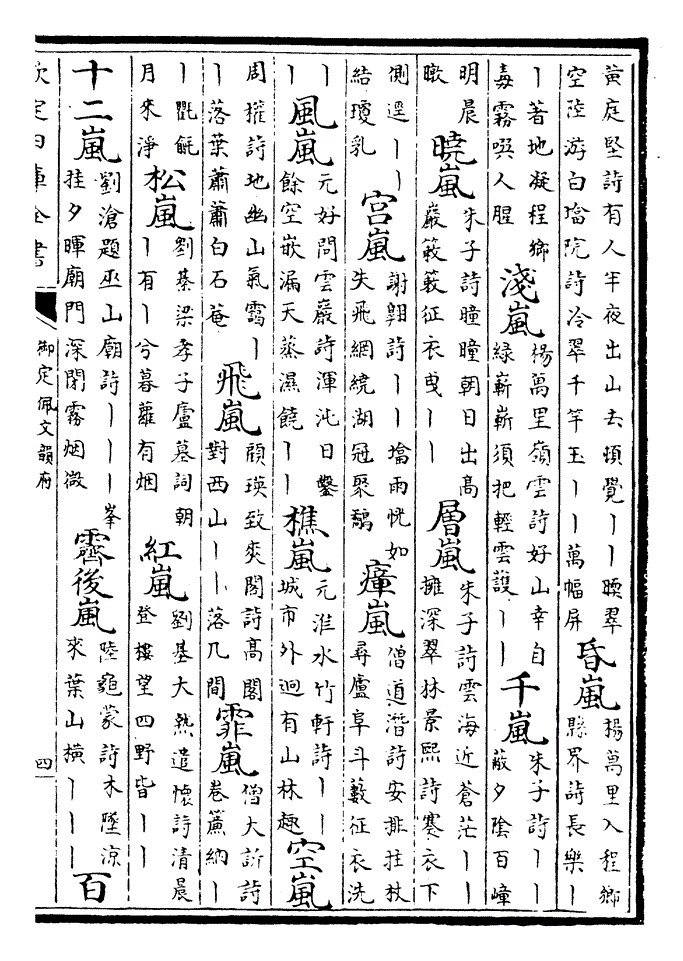 黃庭堅詩有人半夜出山去頓覺丨丨腰翠
空陸游白墖院詩冷翠千竿玉丨丨萬幅屏
昏嵐
楊萬里入程鄉
縣界詩長樂丨
丨著地凝程鄉
毒霧噀人腥
淺嵐
楊萬里嶺雲詩好山幸自
綠嶄嶄須把輕雲護丨丨
千嵐
朱子詩丨丨
蔽夕陰百嶂
明晨
暾
曉嵐
朱子詩曈曈朝日出高
巖蔌蔌征衣曳丨丨
層嵐
朱子詩雲海近蒼茫丨丨
擁深翠林景熙詩褰衣下
側逕丨丨
結瓊乳
宮嵐
謝翱詩丨丨墖雨恍如
失飛網繞湖冠聚鷸
瘴嵐
僧道潛詩安排拄杖
尋廬阜斗藪征衣洗
丨
丨
風嵐
元好問雲巖詩渾沌日鑿
餘空嵌漏天蒸濕饒丨丨
樵嵐
元淮水竹軒詩丨丨
城市外迴有山林趣
空嵐
周權詩地幽山氣靄丨
丨落葉蕭蕭白石菴
飛嵐
顧瑛致爽閣詩高閣
對西山丨丨落几間
霏嵐
僧大訢詩
卷簾納丨
丨氍毹
月來淨
松嵐
劉基梁孝子廬墓詞朝
丨有丨兮暮蘿有烟
紅嵐
劉基大熱遣懷詩清晨
登樓望四野皆丨丨
十二嵐
劉滄題巫山廟詩丨丨丨峯
挂夕暉廟門深閉霧烟微
霽後嵐
陸龜蒙詩木墜涼
來葉山橫丨丨丨
百
欽定四庫全書
御定佩文韻府
四